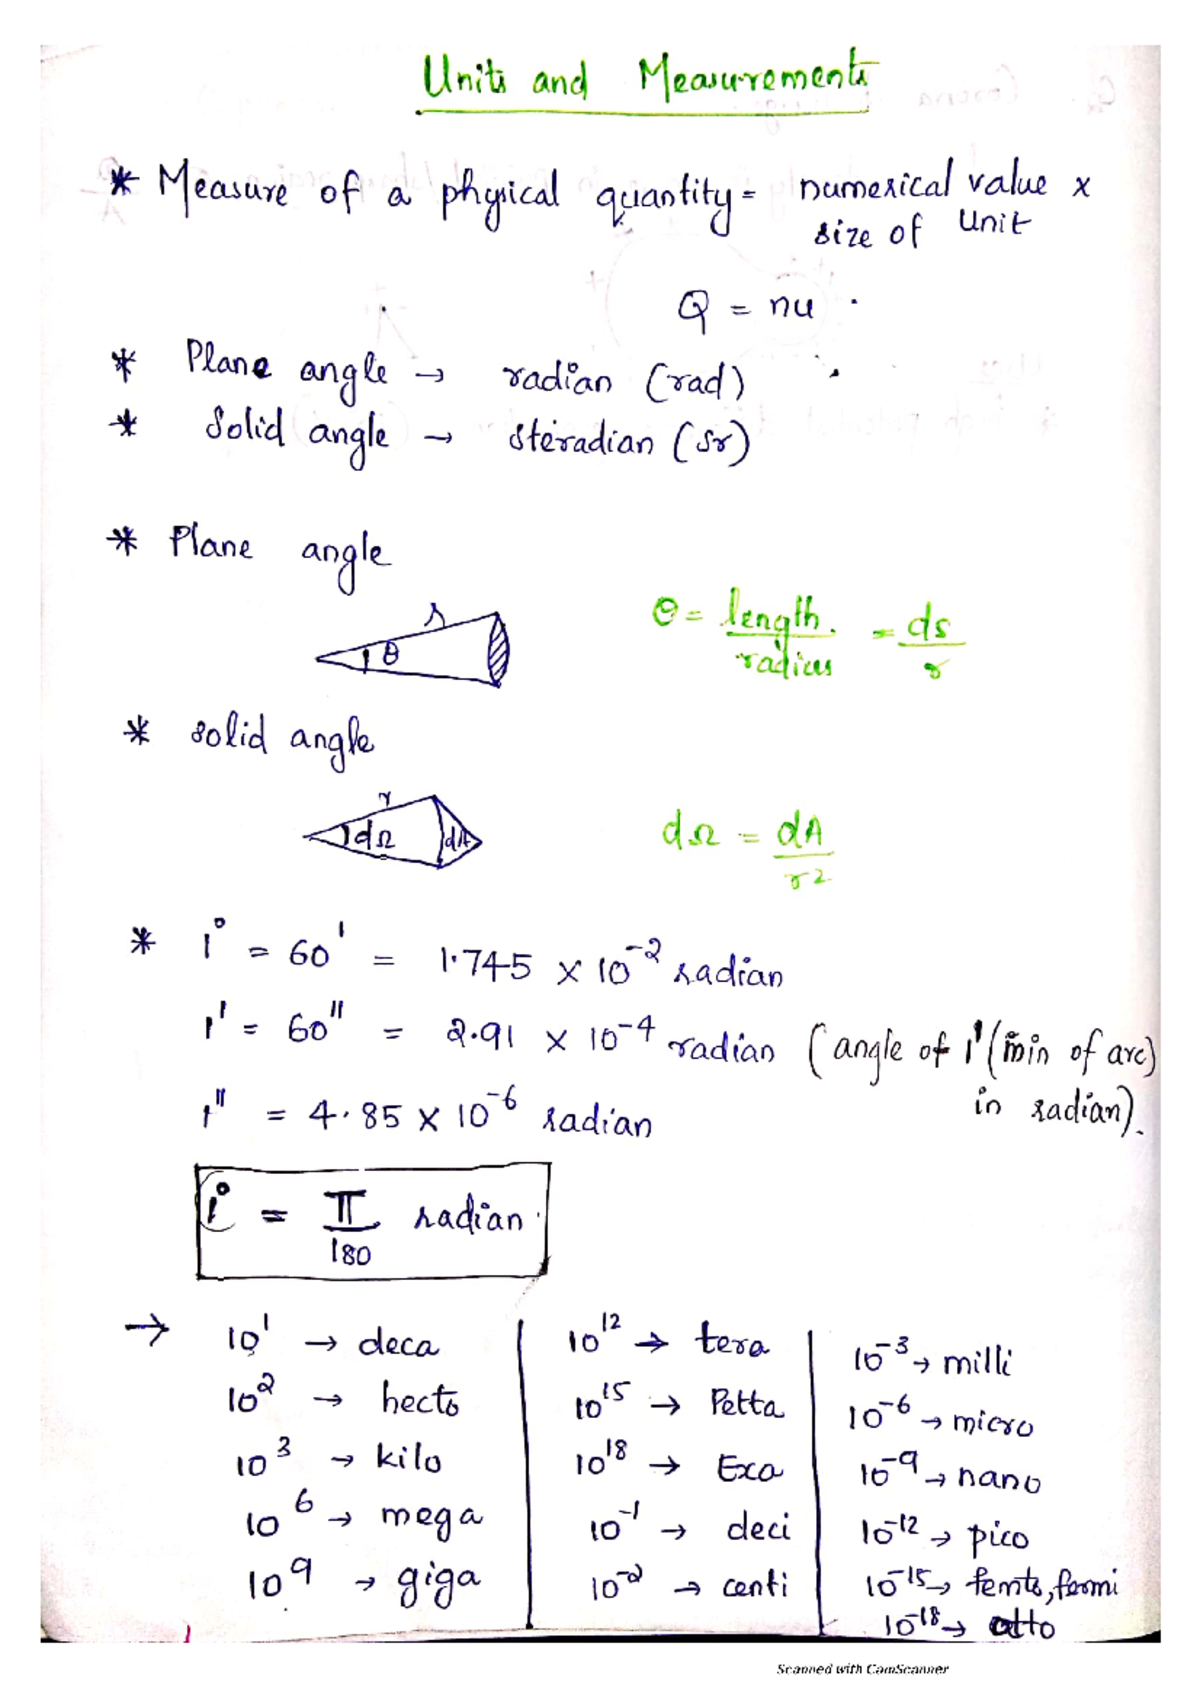 Units and Measurements
* Measure of a physical quantity = numerical value x
size of unit
Q = nu .
* Plane angle → radian (rad)
* Solid angle → steradian (sr)
* Plane angle
r
θ
θ = length / radius = ds / r
* Solid angle
r
dΩ
dA
dΩ = dA / r²
* 1° = 60' = 1.745 x 10⁻² radian
1' = 60'' = 2.91 x 10⁻⁴ radian (angle of 1' (min of arc)
in radian).
1'' = 4.85 x 10⁻⁶ radian
1° = π / 180 radian.
→ 10¹ → deca
10² → hecto
10³ → kilo
10⁶ → mega
10⁹ → giga
10¹² → tera
10¹⁵ → Petta
10¹⁸ → Exa
10⁻¹ → deci
10⁻² → centi
10⁻³ → milli
10⁻⁶ → micro
10⁻⁹ → nano
10⁻¹² → pico
10⁻¹⁵ → femto, fermi
10⁻¹⁸ → atto
Scanned with CamScanner